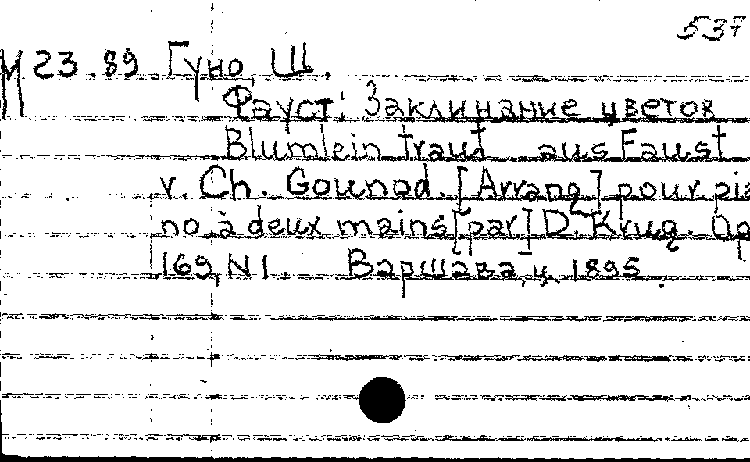 537
М 23.89 Гуно, Ш.
Фауст: Заклинание цветов
Blumlein traut aus Faust
v. Ch. Gounod. [Arrang] pour pia
no à deux mains [par] D. Krug. Op
169, N 1. Варшава, ц. 1895.